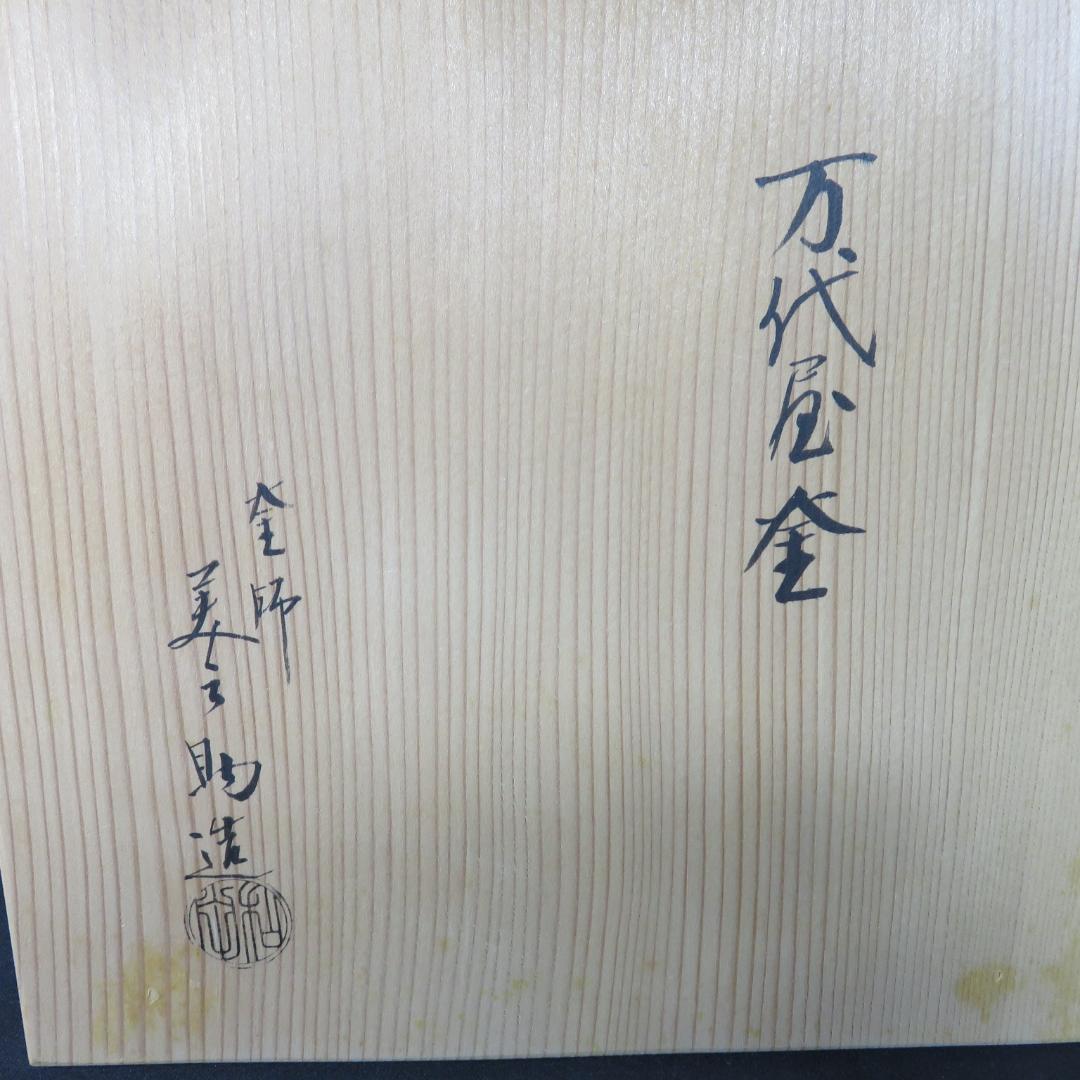 万代屋釜
釜師
美之助造